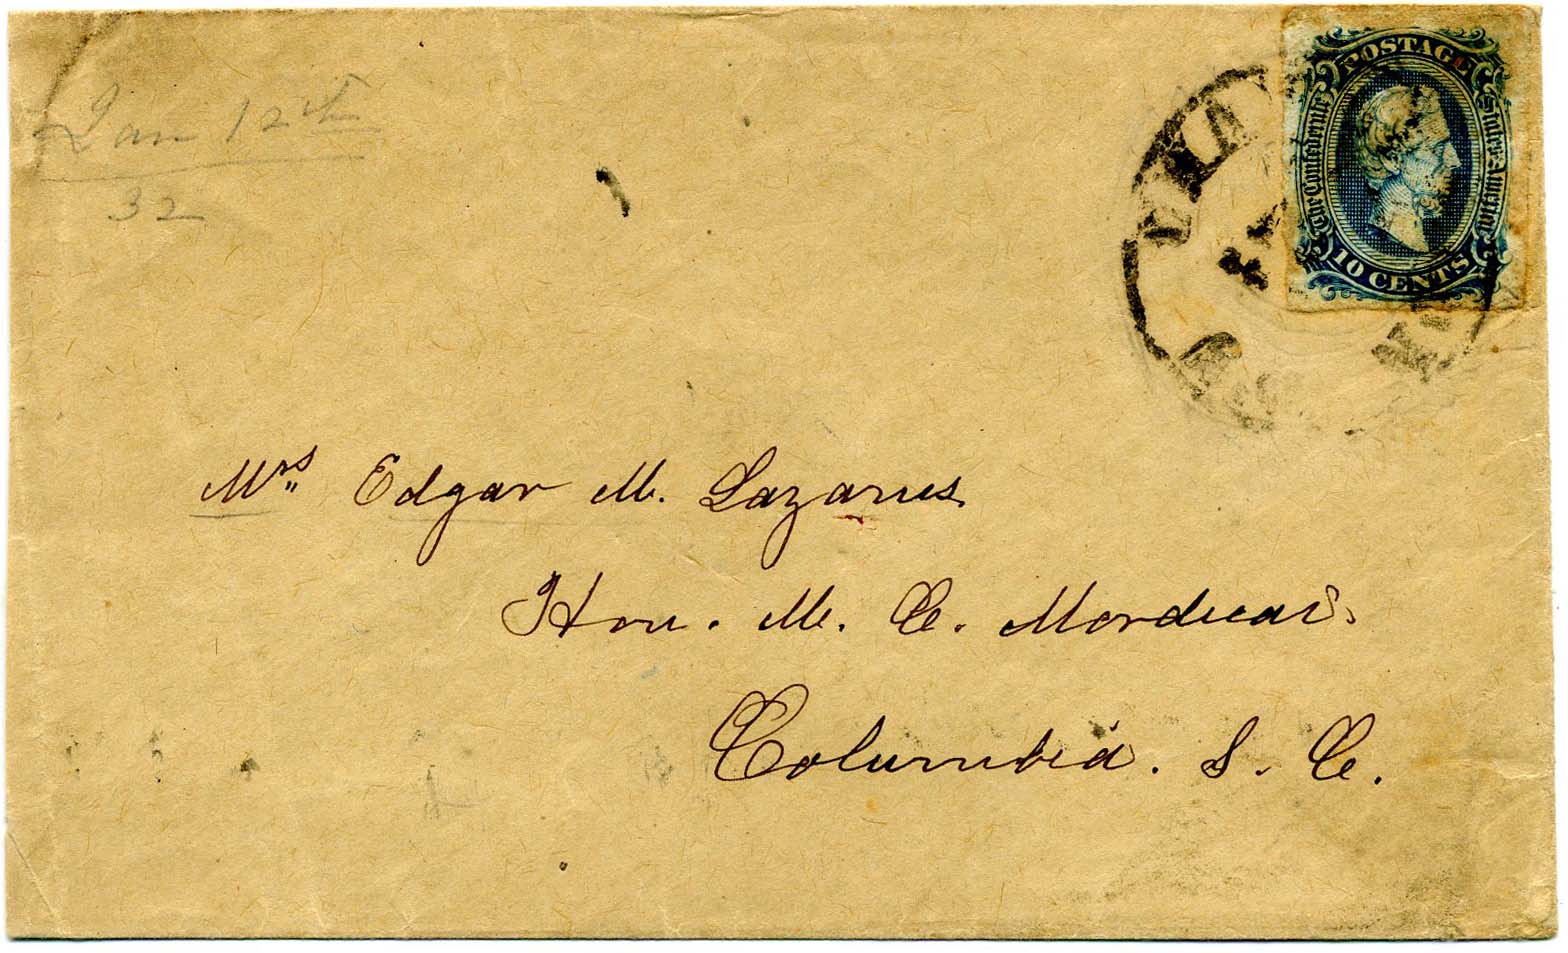 Jan 12th
32
POSTAGE
The Confederate States America
10 CENTS
Mrs Edgar M. Lazarus
Hon. M. C. Mordecai.
Columbia. S. C.